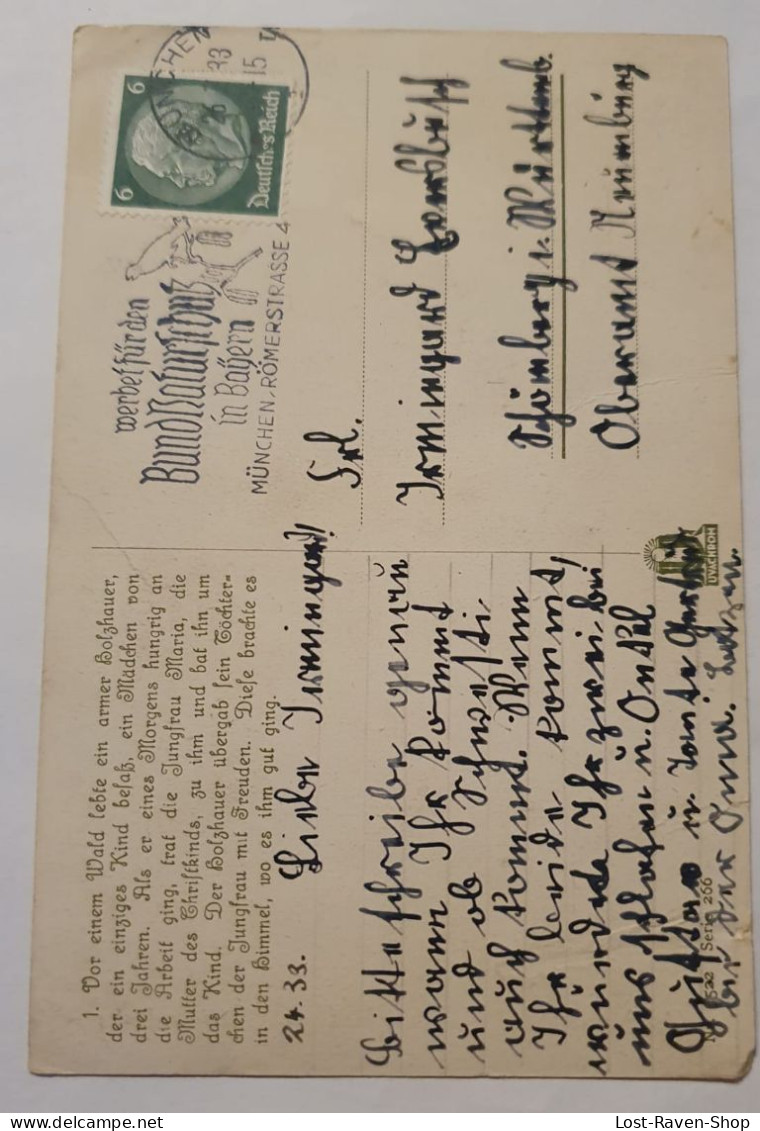 1. Vor einem Wald lebte ein armer Holzhauer,
der ein einziges Kind besaß, ein Mädchen von
drei Jahren. Als er eines Morgens hungrig an
die Arbeit ging, trat die Jungfrau Maria, die
Mutter des Christkinds, zu ihm und bat ihn um
das Kind. Der Holzhauer übergab sein Töchter-
chen der Jungfrau mit Freuden. Diese brachte es
in den Himmel, wo es ihm gut ging.
Liebe Irmingard!
Bitte schreibe genau
wann Ihr kommt
und ob Schwesti
auch kommt. Wenn
Ihr beide kommt,
würdet Ihr zwei bei
uns schlafen u. Onkel
Gustav u. Tante
bei der Oma.
Serie 266
UVACHROM
werbet für den
Bund Naturschutz
in Bayern
MÜNCHEN, RÖMERSTRASSE
MÜNCHEN
33
15
6 6
Deutsches Reich
Frl.
Irmingard
Schömberg i. Württemb.
Oberamt Neuenbürg
Lost-Raven-Shop